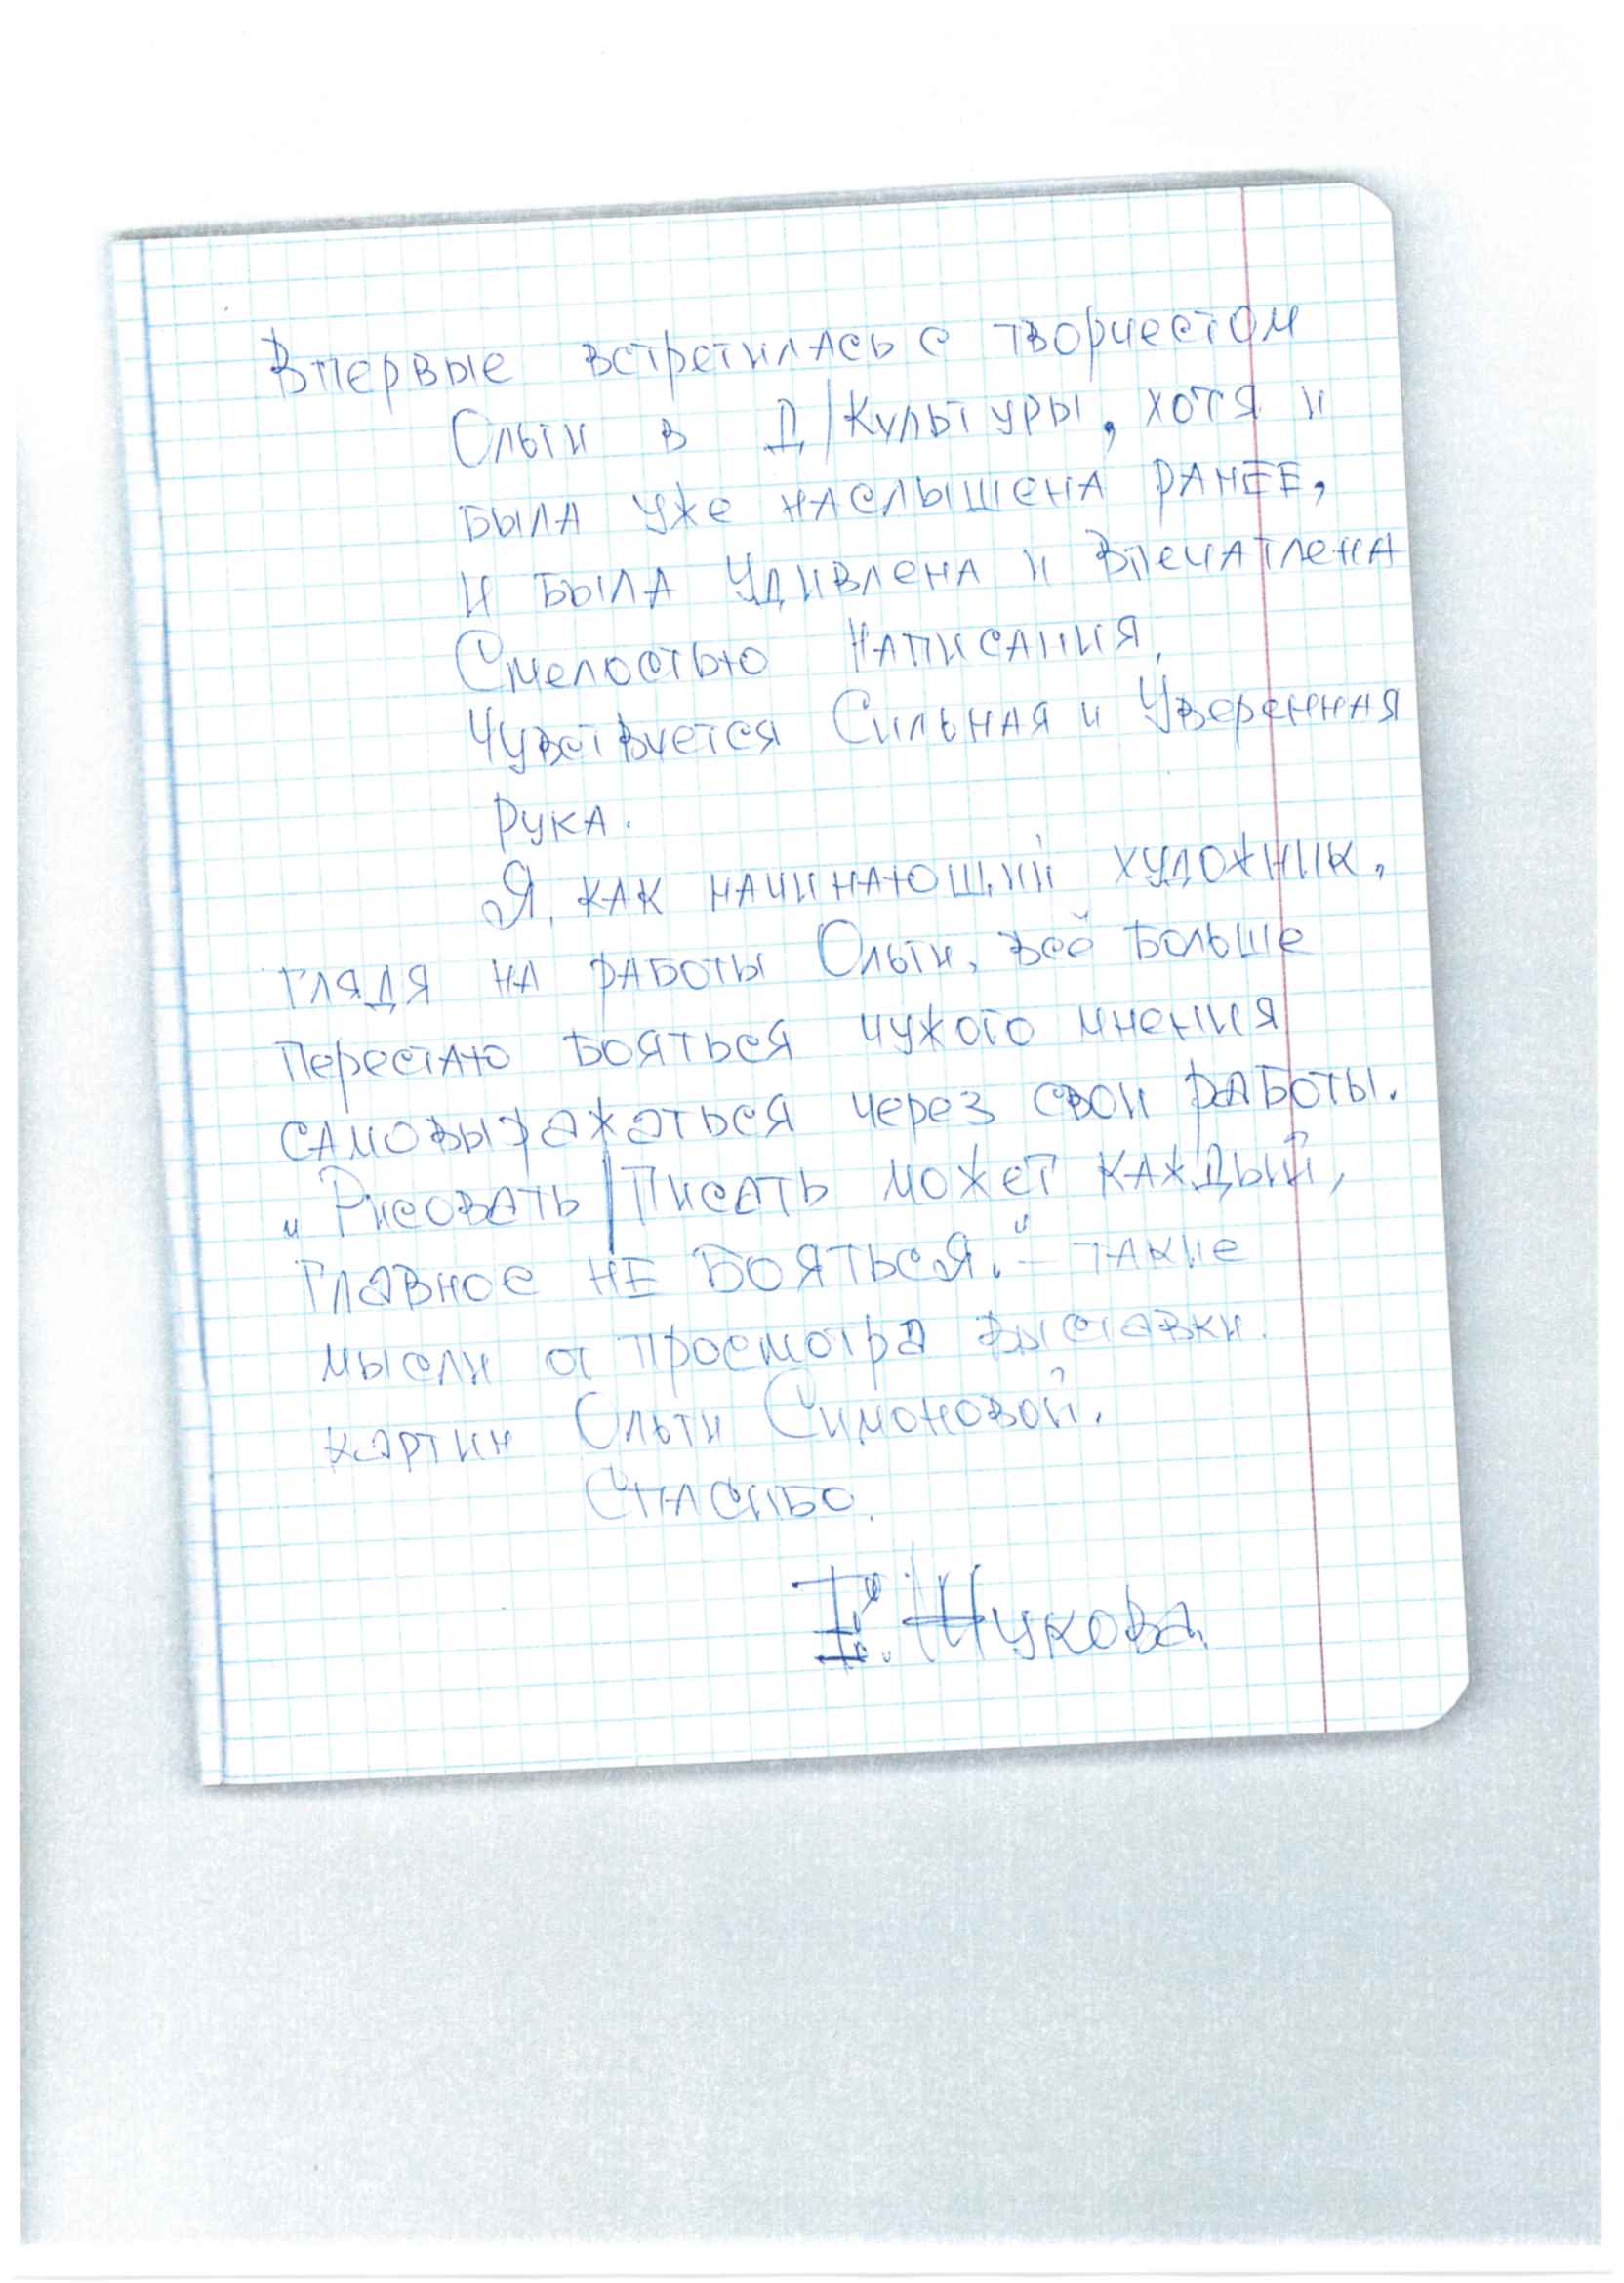 Впервые встретилась с творчестом
Ольги в Д/Культуры, хотя и
была уже наслышена ранее,
и была удивлена и впечатлена
Смелостью написания,
Чувствуется Сильная и Уверенная
рука.
Я, как начинающий художник,
глядя на работы Ольги, всё больше
перестаю бояться чужого мнения
самовыражаться через свои работы.
„Рисовать/Писать может каждый,
главное не бояться." – такие
мысли от просмотра выставки
картин Ольги Симоновой.
Спасибо.
Е. Жукова